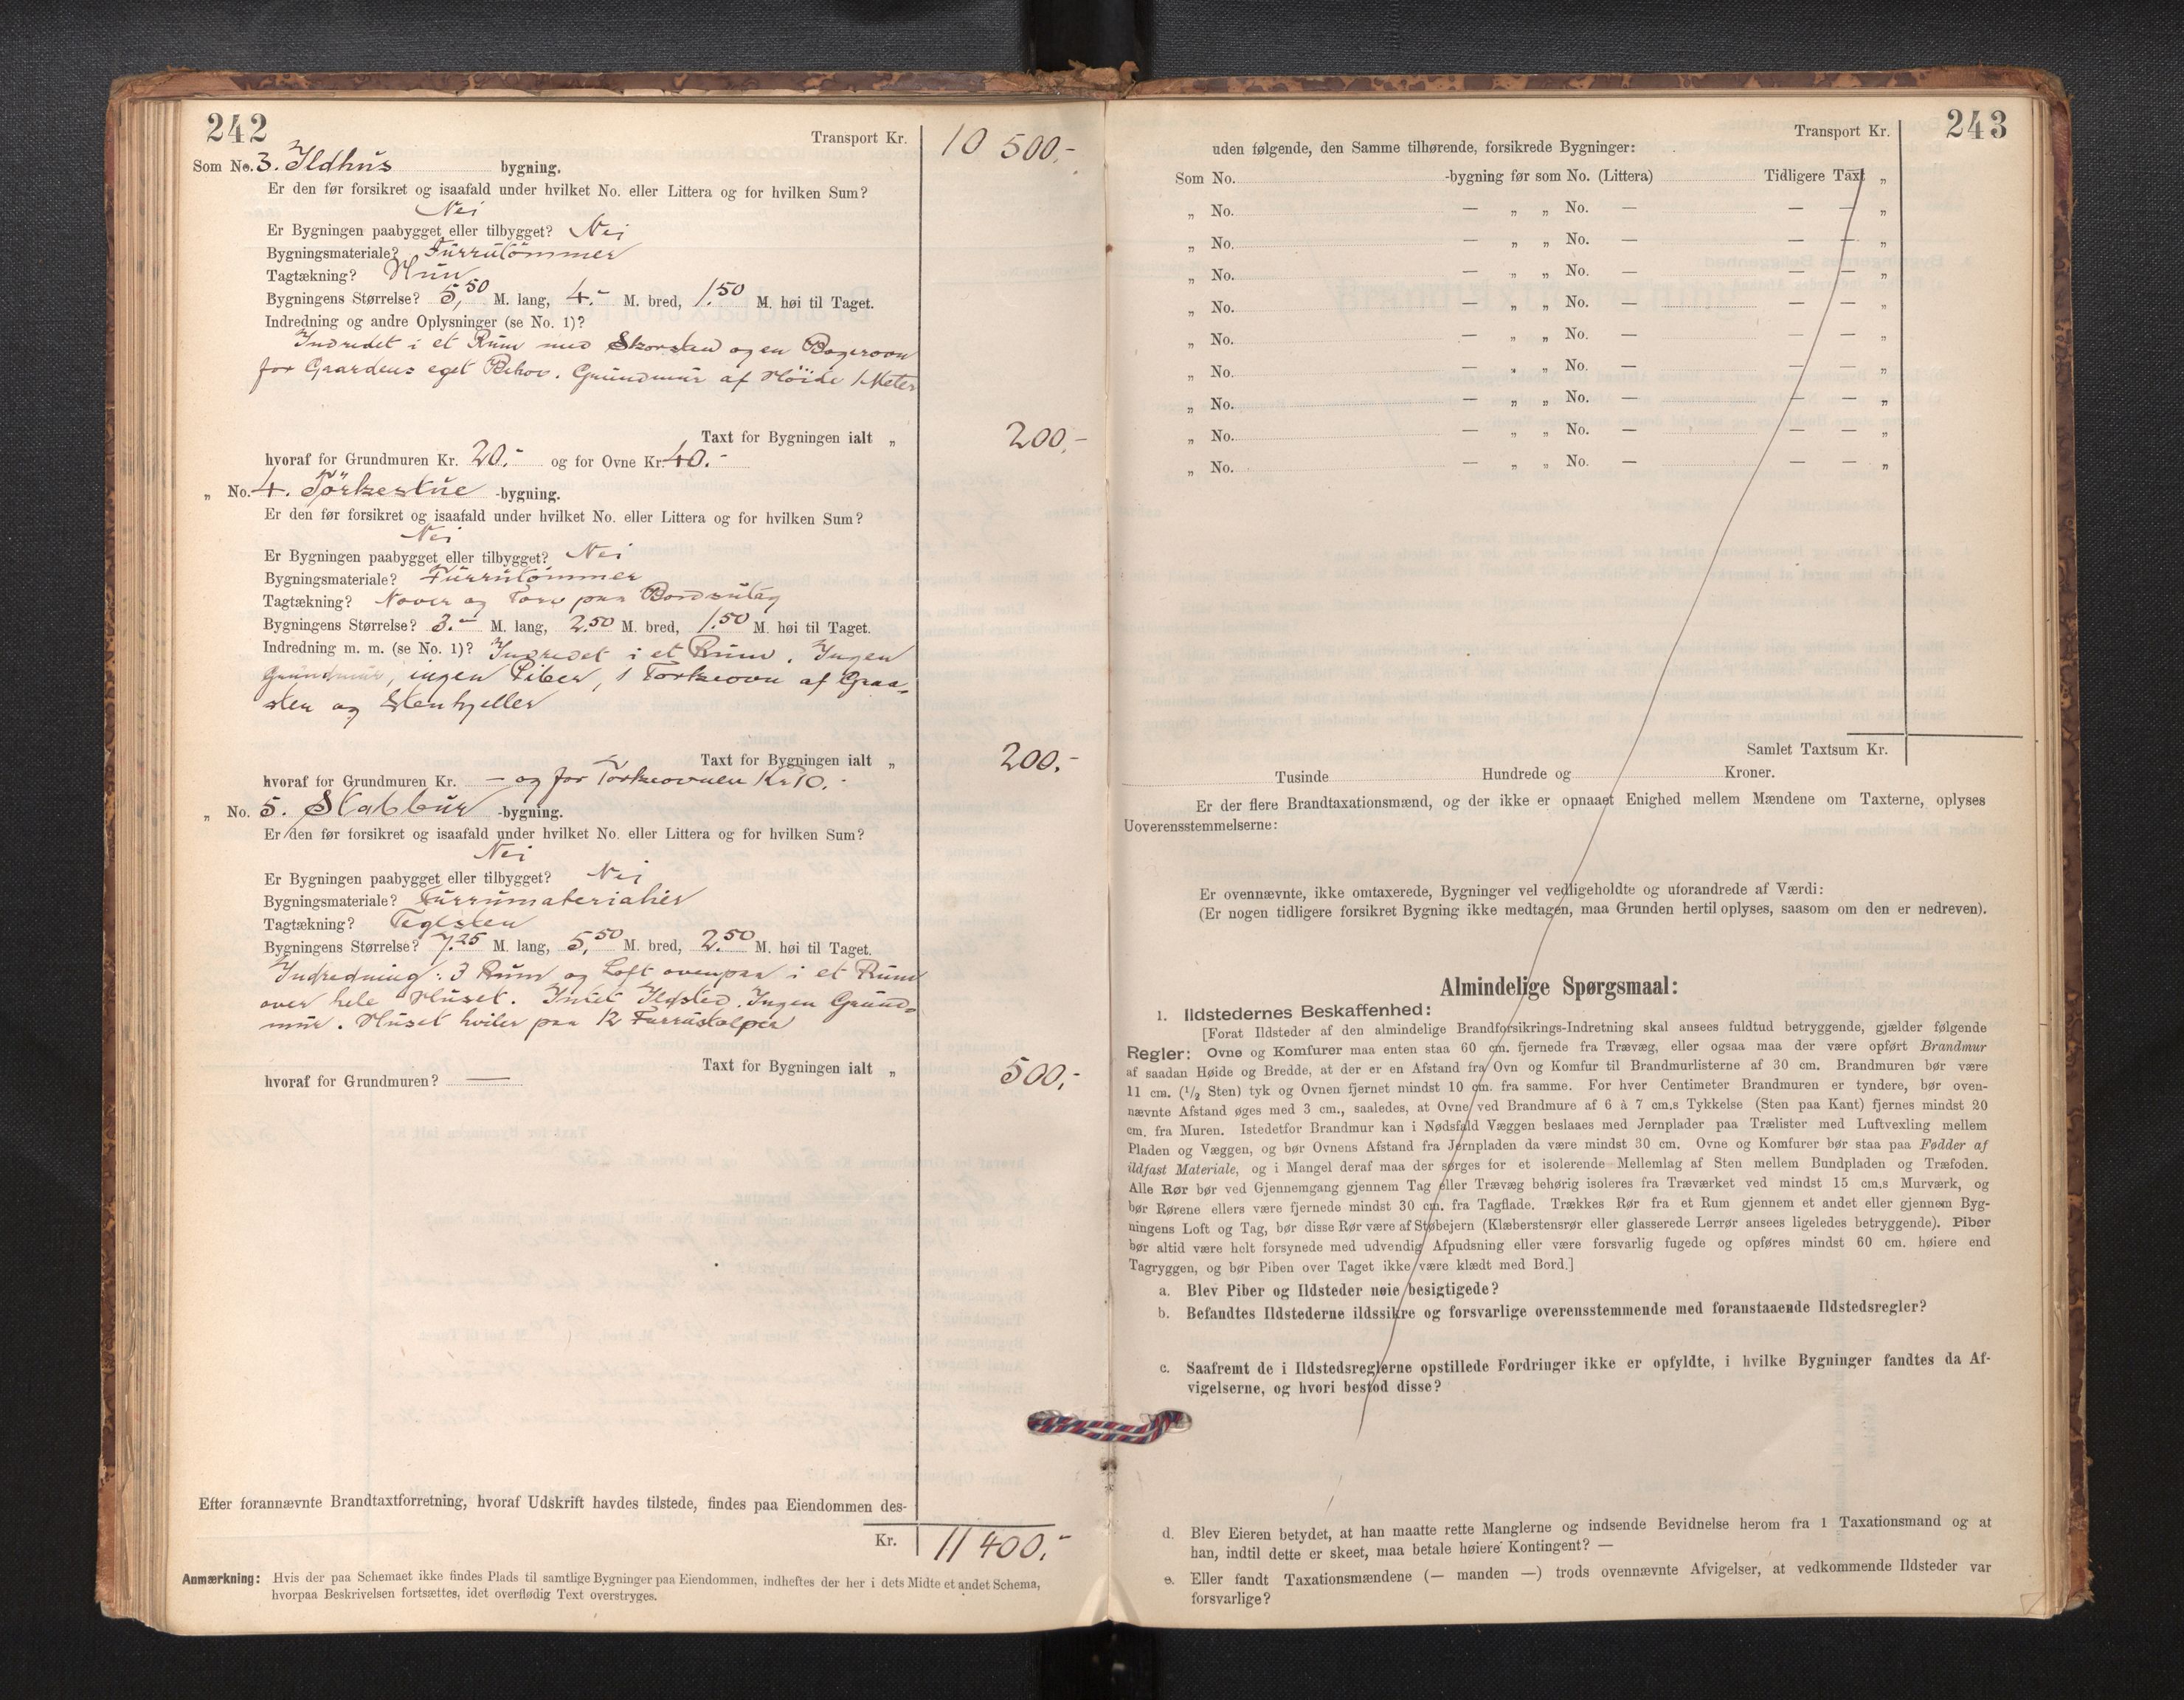 242
Transport Kr. 10 500,-
Som No. 3. Ildhus bygning.
Er den før forsikret og isaafald under hvilket No. eller Littera og for hvilken Sum?
Nei
Er Bygningen paabygget eller tilbygget? Nei
Bygningsmateriale? Furrutömmer
Tagtækning? Hun
Bygningens Størrelse? 5,50 M. lang, 4.- M. bred, 1.50 M. høi til Taget.
Indredning og andre Oplysninger (se No. 1)?
Indredet i et Rum med Skorsten og en Bagerovn
for Gaardens eget Behov. Grundmur af Höide 1 Meter
Taxt for Bygningen ialt „ 200,-
hvoraf for Grundmuren Kr. 20.- og for Ovne Kr. 40.-
„ No. 4. Törkestue -bygning.
Er den før forsikret og isaafald under hvilket No. eller Littera og for hvilken Sum?
Nei
Er Bygningen paabygget eller tilbygget? Nei
Bygningsmateriale? Furrutömmer
Tagtækning? Never og Torv paa Bordsutag
Bygningens Størrelse? 3.- M. lang, 2.50 M. bred, 1.50 M. høi til Taget.
Indredning m. m. (se No. 1)? Indredet i et Rum. Ingen
Grundmur, ingen Piber, 1 Torkeovn af Graa-
sten og Stenhjeller
Taxt for Bygningen ialt „ 200.-
hvoraf for Grundmuren Kr. — og for Torkeovnen Kr 10.-
„ No. 5. Stabbur -bygning.
Er den før forsikret og isaafald under hvilket No. eller Littera og for hvilken Sum?
Nei
Er Bygningen paabygget eller tilbygget? Nei
Bygningsmateriale? Furrumaterialier
Tagtækning? Teglsten
Bygningens Størrelse? 7.25 M. lang, 5,50 M. bred, 2.50 M. høi til Taget.
Indredning: 3 Rum og Loft ovenpaa i et Rum
over hele Huset. Intet Ildsted. Ingen Grund-
mur. Huset hviler paa 12 Furrustolper
Taxt for Bygningen ialt „ 500,-
hvoraf for Grundmuren? —
Efter forannævnte Brandtaxtforretning, hvoraf Udskrift havdes tilstede, findes paa Eiendommen des-
Kr. 11 400.-
Anmærkning: Hvis der paa Schemaet ikke findes Plads til samtlige Bygninger paa Eiendommen, indheftes der her i dets Midte et andet Schema,
hvorpaa Beskrivelsen fortsættes, idet overflødig Text overstryges.
243
Transport Kr.
uden følgende, den Samme tilhørende, forsikrede Bygninger:
Som No. -bygning før som No. (Littera) Tidligere Taxt „
„ No. — „ „ No. — — — „
„ No. — „ „ No. — — — „
„ No. — „ „ No. — — — „
„ No. — „ „ No. — — — „
„ No. — „ „ No. — — — „
„ No. — „ „ No. — — — „
„ No. — „ „ No. — — — „
„ No. — „ „ No. — — — „
„ No. — „ „ No. — — — „
Samlet Taxtsum Kr.
Tusinde Hundrede og Kroner.
Er der flere Brandtaxationsmænd, og der ikke er opnaaet Enighed mellem Mændene om Taxterne, oplyses
Uoverensstemmelserne:
Er ovennævnte, ikke omtaxerede, Bygninger vel vedligeholdte og uforandrede af Værdi:
(Er nogen tidligere forsikret Bygning ikke medtagen, maa Grunden hertil oplyses, saasom om den er nedreven).
Almindelige Spørgsmaal:
1. Ildstedernes Beskaffenhed:
[Forat Ildsteder af den almindelige Brandforsikrings-Indretning skal ansees fuldtud betryggende, gjælder følgende
Regler: Ovne og Komfurer maa enten staa 60 cm. fjernede fra Trævæg, eller ogsaa maa der være opført Brandmur
af saadan Høide og Bredde, at der er en Afstand fra Ovn og Komfur til Brandmurlisterne af 30 cm. Brandmuren bør være
11 cm. (1/2 Sten) tyk og Ovnen fjernet mindst 10 cm. fra samme. For hver Centimeter Brandmuren er tyndere, bør oven-
nævnte Afstand øges med 3 cm., saaledes, at Ovne ved Brandmure af 6 à 7 cm.s Tykkelse (Sten paa Kant) fjernes mindst 20
cm. fra Muren. Istedetfor Brandmur kan i Nødsfald Væggen beslaaes med Jernplader paa Trælister med Luftvexling mellem
Pladen og Væggen, og bør Ovnens Afstand fra Jernpladen da være mindst 30 cm. Ovne og Komfurer bør staa paa Fødder af
ildfast Materiale, og i Mangel deraf maa der sørges for et isolerende Mellemlag af Sten mellem Bundpladen og Træfoden.
Alle Rør bør ved Gjennemgang gjennem Tag eller Trævæg behørig isoleres fra Træværket ved mindst 15 cm.s Murværk, og
bør Rørene ellers være fjernede mindst 30 cm. fra Tagflade. Trækkes Rør fra et Rum gjennem et andet eller gjennem Byg-
ningens Loft og Tag, bør disse Rør være af Støbejern (Klæberstensrør eller glasserede Lerrør ansees ligeledes betryggende). Piber
bør altid være helt forsynede med udvendig Afpudsning eller være forsvarlig fugede og opføres mindst 60 cm. høiere end
Tagryggen, og bør Piben over Taget ikke være klædt med Bord.]
a. Blev Piber og Ildsteder nøie besigtigede?
b. Befandtes Ildstederne ildssikre og forsvarlige overensstemmende med foranstaaende Ildstedsregler?
c. Saafremt de i Ildstedsreglerne opstillede Fordringer ikke er opfyldte, i hvilke Bygninger fandtes da Af-
vigelserne, og hvori bestod disse?
d. Blev Eieren betydet, at han maatte rette Manglerne og indsende Bevidnelse herom fra 1 Taxationsmand og at
han, indtil dette er skeet, maa betale høiere Kontingent? —
e. Eller fandt Taxationsmændene (— manden —) trods ovennævnte Afvigelser, at vedkommende Ildsteder var
forsvarlige?